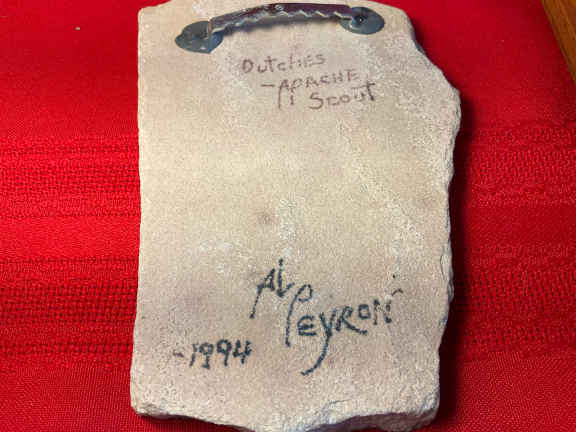 Dutchies
-APACHE
Scout
Al
Peyron
-1994